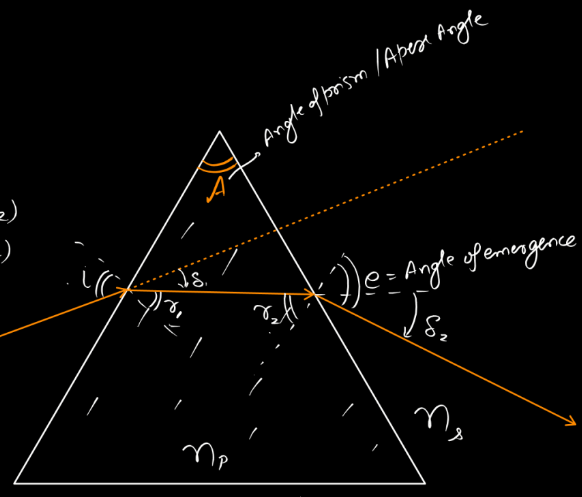 Angle of prism / Apex Angle
A
2)
)
i
δ₁
r₁
r₂
e = Angle of emergence
δ₂
ηₚ
ηₛ